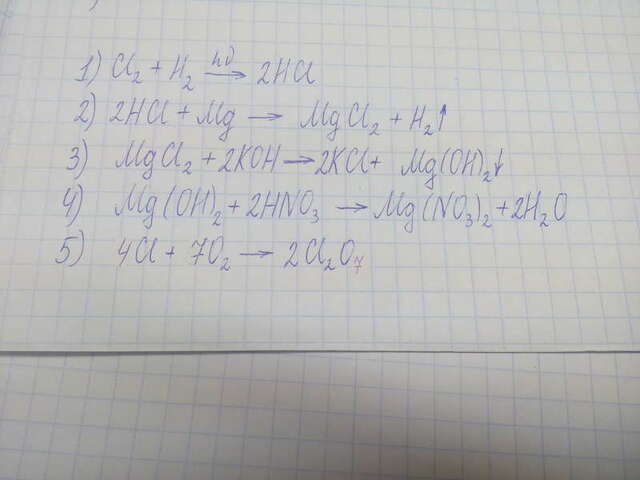 1) Cl₂ + H₂ —hν→ 2HCl
2) 2HCl + Mg → MgCl₂ + H₂↑
3) MgCl₂ + 2KOH → 2KCl + Mg(OH)₂↓
4) Mg(OH)₂ + 2HNO₃ → Mg(NO₃)₂ + 2H₂O
5) 4Cl + 7O₂ → 2Cl₂O₇